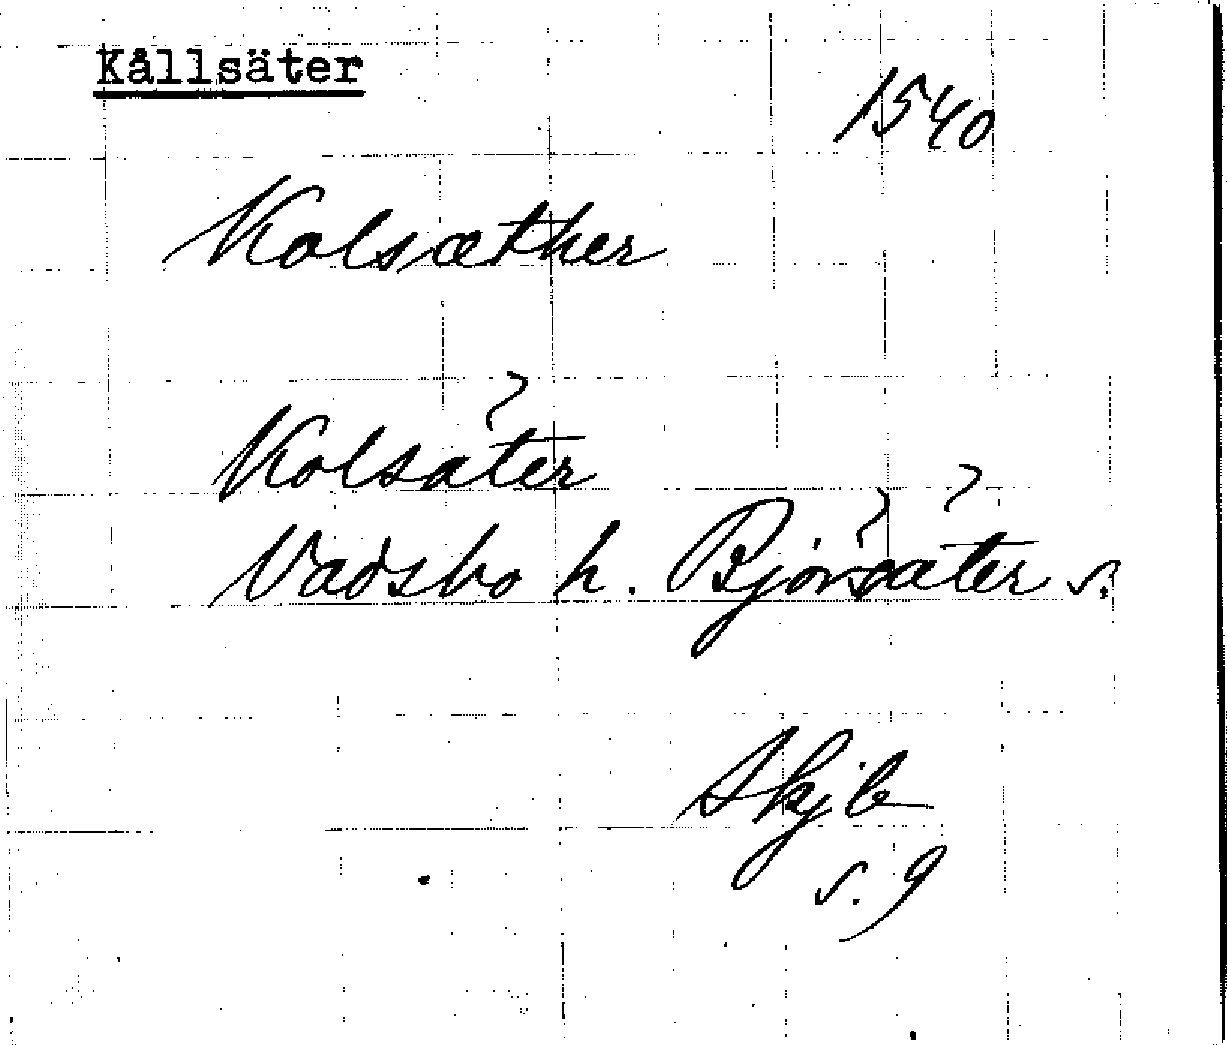 Kållsäter
1540
Kolsæther
Kolsäter
Vadsbo h. Björsäter s.
Skjb
s. 9